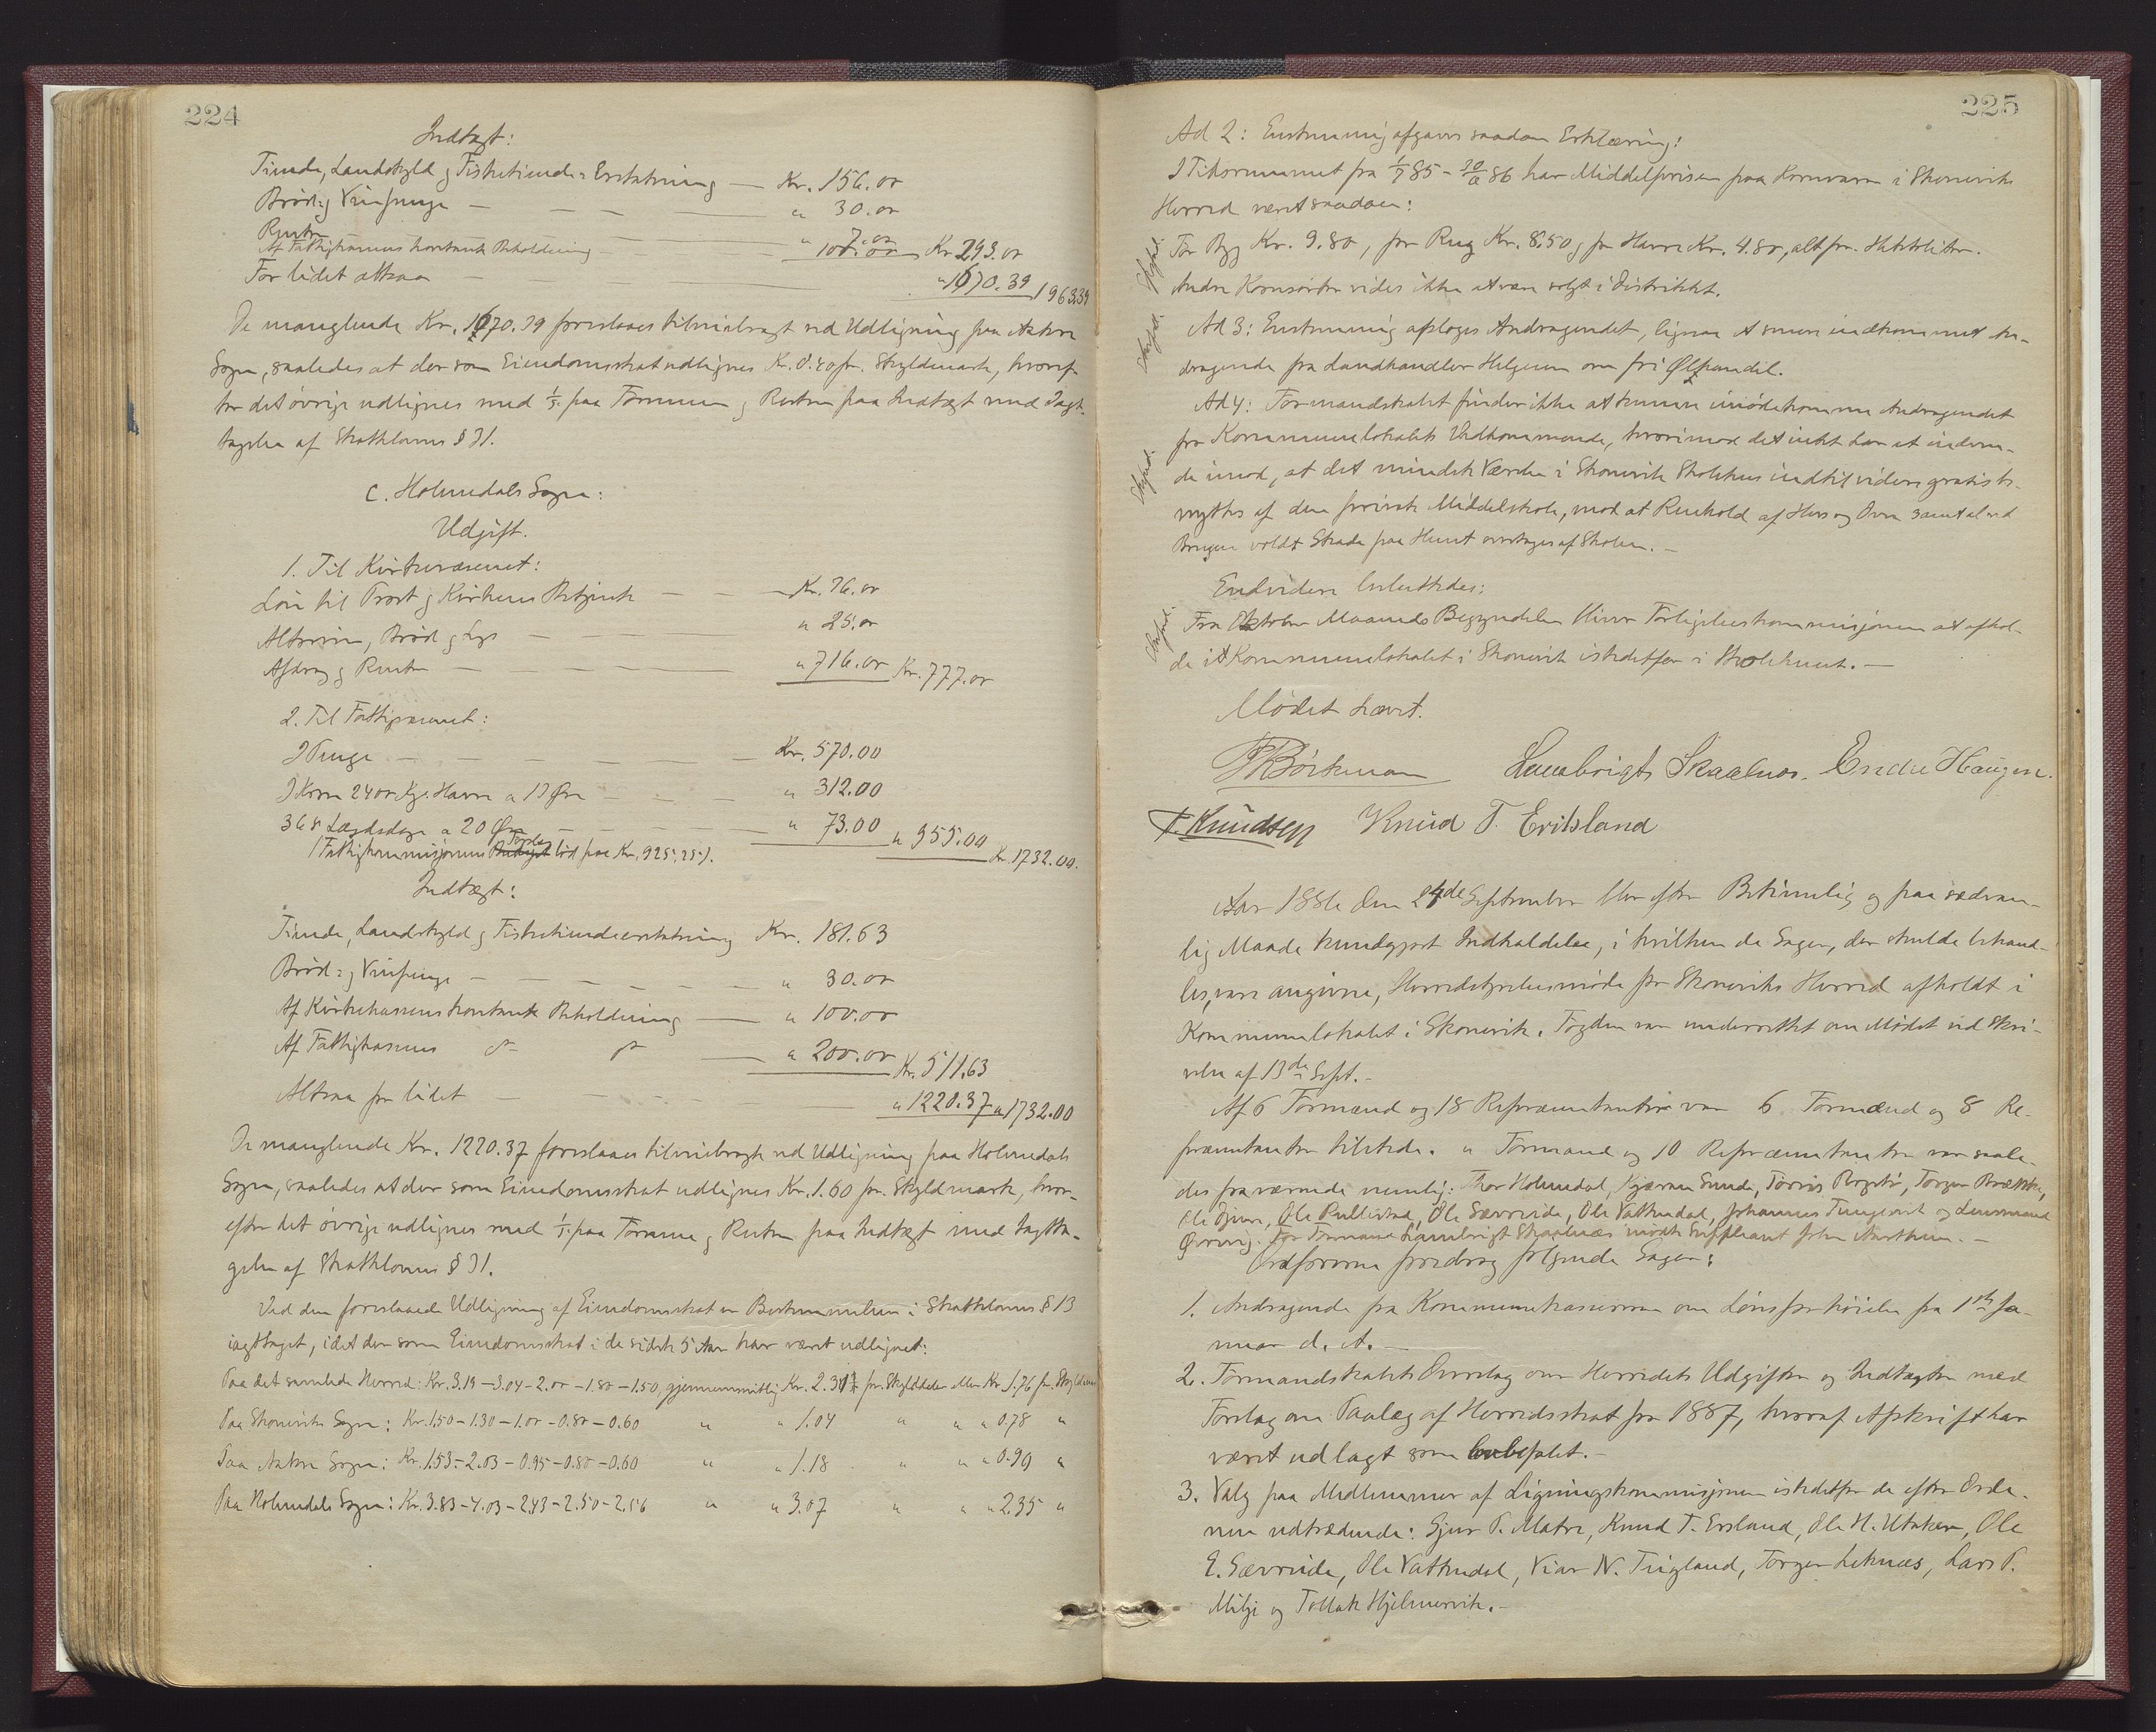 224
Indtægt:
Tiende, Landskyld & Fisketiende-Erstatning — Kr. 156.00
Brød- & Vinpenge — — — " 30.00
Renter — — — " 7.00
Af Fattigkassens kontante Beholdning — — 100.00 Kr 293.00
For lidet altsaa — — " 1670.39 1963.39
De manglende Kr. 1670.39 foreslaaes tilveiebragt ved Udligning paa Aakre
Sogn, saaledes at der som Eiendomsskat udlignes Kr. 0.40 pr. Skyldmark, hvoref-
ter det øvrige udlignes med 1/5 paa Formue & Resten paa Indtægt med Iagt-
tagelse af Skatteloven § 31.
C. Holmedals Sogn:
Udgift.
1. Til Kirkevæsenet:
Løn til Provst & Kirkens Betjente — — Kr. 36.00
Altervin, Brød & Lys — — — " 25.00
Afdrag & Renter — — — " 716.00 Kr. 777.00
2. Til Fattigvæsenet:
I Penge — — — Kr. 570.00
I Korn 2400 Kg. Havre a 13 Øre — — " 312.00
368 Lægdsdage a 20 Øre — — " 73.00 " 955.00 Kr. 1732.00.
(Fattigkommissionens Forslag lød paa Kr. 925,25).
Indtægt:
Tiende, Landskyld & Fisketiendeerstatning Kr. 181.63
Brød- & Vinpenge — — — " 30.00
Af Kirkekassens kontante Beholdning — " 100.00
Af Fattigkassens do do — " 200.00 Kr. 511.63
Altsaa for lidet — — — " 1220.37 " 1732.00
De manglende Kr. 1220.37 foreslaaes tilveiebragt ved Udligning paa Holmedals
Sogn, saaledes at der som Eiendomsskat udlignes Kr. 1.60 pr. Skyldmark, hvor-
efter det øvrige udlignes med 1/5 paa Formue & Resten paa Indtægt med Iagtta-
gelse af Skatteloven § 31.
Ved den foreslaaede Udligning af Eiendomsskat er Bestemmelsen i Skatteloven § 13
iagttaget, idet der som Eiendomsskat i de sidste 5 Aar har været udlignet:
Paa det samlede Herred: Kr. 3.19 – 3.04 – 2.00 – 1.80 – 1.50, gjennemsnitlig Kr. 2.31 pr. Skylddaler eller Kr. 1.76 pr. Skyldmark
Paa Skonevik Sogn: Kr. 1.50 – 1.30 – 1.00 – 0.80 – 0.60 " " 1.04 " " " 0.78 "
Paa Aakre Sogn: Kr. 1.53 – 2.03 – 0.95 – 0.80 – 0.60 " " 1.18 " " " 0.90 "
Paa Holmedals Sogn: Kr. 3.83 – 4.03 – 2.43 – 2.50 – 2.56 " " 3.07 " " " 2.35 "
225
Ad 2: Enstemmig afgaves saadan Erklæring:
I Tidsrummet fra 1/7 85 – 20/8 86 har Middelprisen paa Kornvarer i Skoneviks
Herred været saadan:
For Byg Kr. 9.80, for Rug Kr. 8.50 & for Havre Kr. 4.80, alt pr. Hektoliter.
Andre Kornsorter vides ikke at være solgt i Distriktet.
Ad 3: Enstemmig afsloges Andragendet, ligesaa et senere indkommet An-
dragende fra Landhandler Helgesen om fri Ølhandel.
Ad 4: Formandskabet finder ikke at kunne imødekomme Andragendet
for Kommunelokalets Vedkommende, hvorimod det intet har at indven-
de imod, at det mindste Værelse i Skonevik Skolehus indtil videre gratis be-
nyttes af den private Middelskole, mod at Renhold af Hus og Ovn samt al ved
Brugen voldt Skade paa Huset overtages af Skolen. —
Endvidere besluttedes:
Fra Oktober Maaneds Begyndelse bliver Forligelseskommissjonen at afhol-
de i Kommunelokalet i Skonevik istedetfor i Skolehuset. —
Mødet hævet.
Børkman Lambrigt Skaalnes. Endre Haugen.
T. Knudsen Knud T. Eritsland
Aar 1886 den 24de September blev efter Betimelig og paa sædvan-
lig Maade kundgjort Indkaldelse, i hvilken de Sager, der skulde behand-
les, vare angivne, Herredsstyrelsesmøde for Skoneviks Herred afholdt i
Kommunelokalet i Skonevik. Fogden var underrettet om Mødet ved Skri-
velse af 13de Sept. –
Af 6 Formænd og 18 Repræsentanter var 6 Formænd og 8 Re-
præsentanter tilstede. " Formænd og 10 Repræsentanter var saale-
des fraværende nemlig: Thor Holmedal, Kjærran Sunde, Torris Rogstø, Torger Brække,
Ole Bjuen, Ole Rullestad, Ole Særvold, Ole Vattedal, Johannes Tungesvik og Lensmand
Øvrevig. For Formand Lambrigt Skaalnæs mødte Suppleant John Aarthun. –
Ordføreren foredrog følgende Sager:
1. Andragende fra Kommunekassereren om Lønsforhøielse fra 1ste Ja-
nuar d. A. –
2. Formandskabets Overslag over Herredets Udgifter og Indtægter med
Forslag om Paalæg af Herredsskat for 1887, hvoraf Afskrift har
været udlagt som lovbefalet. –
3. Valg paa Medlemmer af Ligningskommissjonen istedetfor de efter Orde-
nen udtrædende: Sjur P. Matre, Knud T. Ersland, Ole H. Utaker, Ole
E. Særvold, Ole Vattedal, Viar N. Tveigland, Torger Leknæs, Lars P.
Milje og Tollak Hjelmervik. –